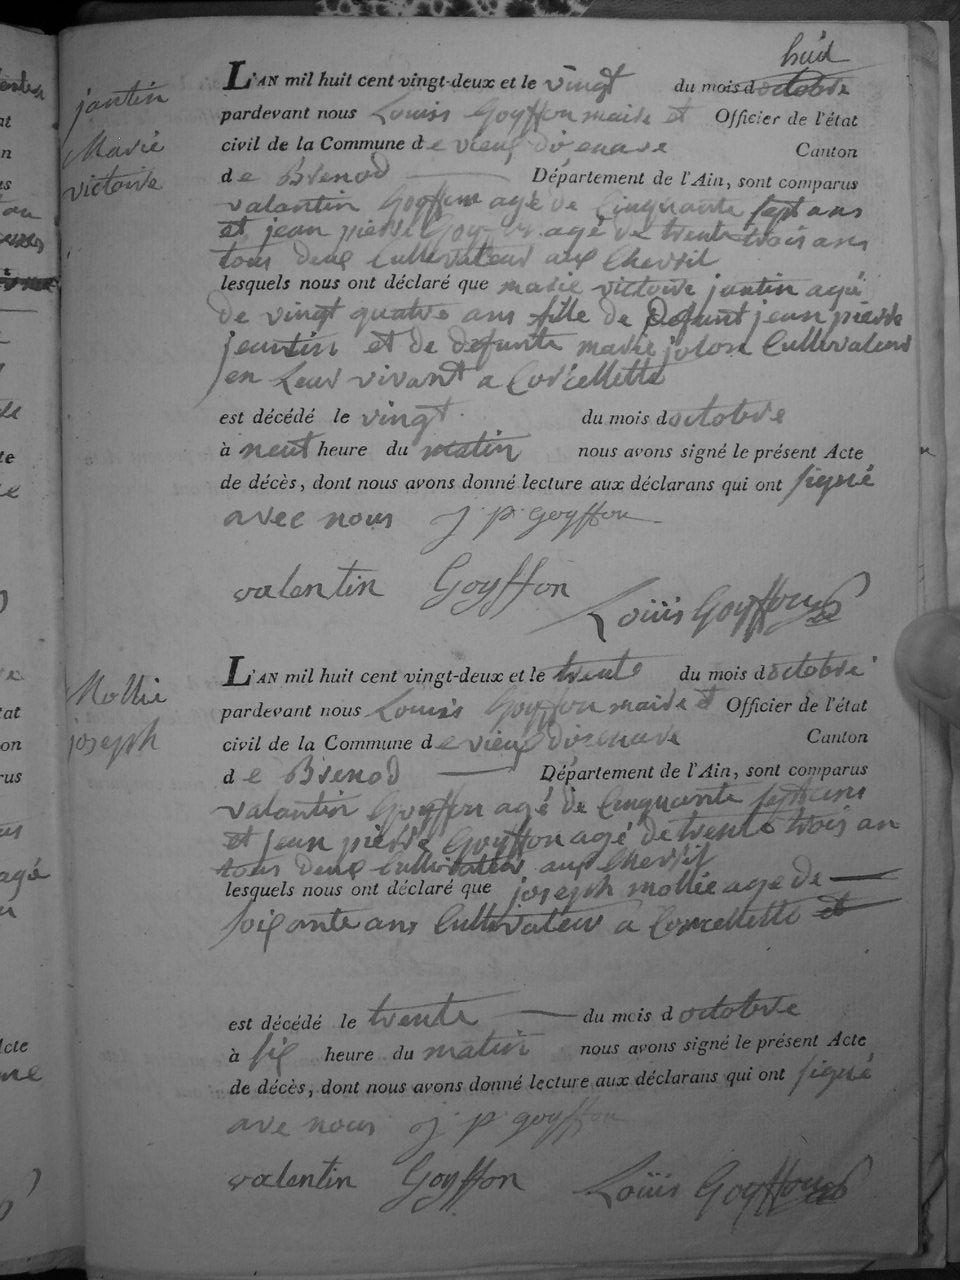 huit
jantin
Marie
victoire
L'AN mil huit cent vingt-deux et le vingt du mois d octobre
pardevant nous Louis Goyffon maire et Officier de l'état
civil de la Commune de vieux d'isenave Canton
de Brenod Département de l'Ain, sont comparus
valantin Goyffon agé de Cinquante sept ans
et jean pierre Goyffon agé de trente trois ans
tous deux Cultivateur aux Chevril
lesquels nous ont déclaré que marie victoire jantin agé
de vingt quatre ans fille de Defunt jean pierre
jeantin et de defunte marie Cultivateur
en Leur vivant a Corcellette
est décédé le vingt du mois d octobre
à neuf heure du matin nous avons signé le présent Acte
de décès, dont nous avons donné lecture aux déclarans qui ont signé
avec nous j p goyffon
valentin Goyffon Louis Goyffon
Mollie
joseph
L'AN mil huit cent vingt-deux et le trente du mois d octobre
pardevant nous Louis Goyffon maire et Officier de l'état
civil de la Commune de vieux d'isenave Canton
de Brenod Département de l'Ain, sont comparus
valantin Goyffon agé de Cinquante sept ans
et jean pierre Goyffon agé de trente trois an
tous deux Cultivateur aux Chevril
lesquels nous ont déclaré que joseph mollie age de
soixante ans Cultivateur a Corcellette et
est décédé le trente du mois d octobre
à six heure du matin nous avons signé le présent Acte
de décès, dont nous avons donné lecture aux déclarans qui ont signé
ave nous j p goyffon
valentin Goyffon Louis Goyffon